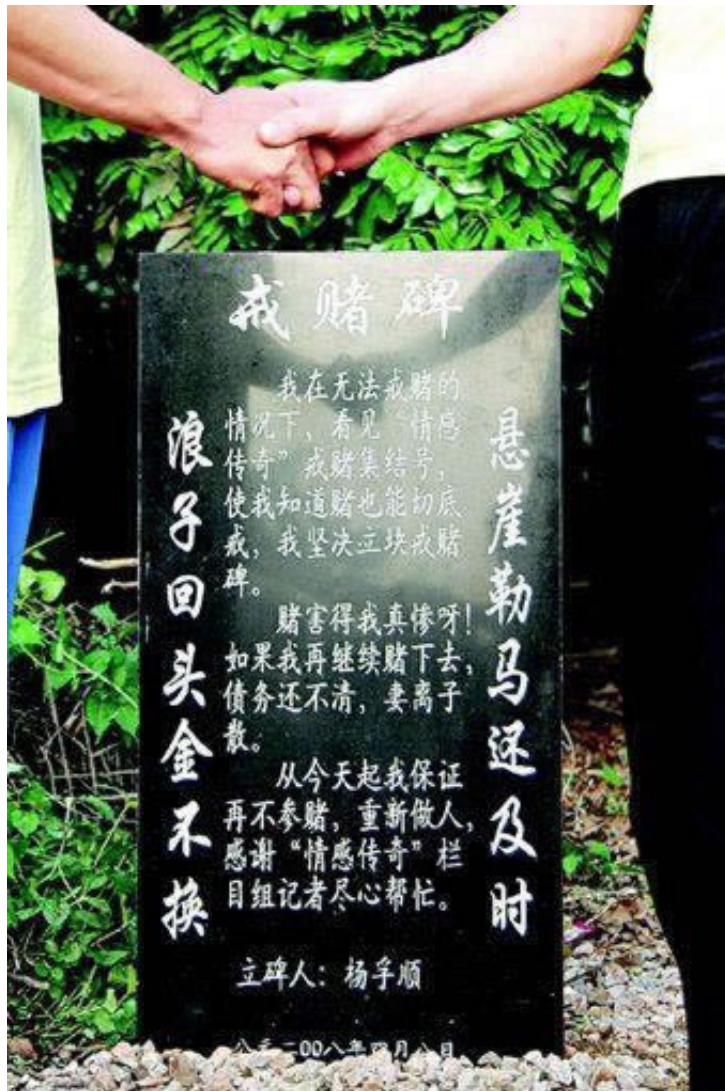 戒赌碑
悬崖勒马还及时
我在无法戒赌的
情况下，看见“情感
传奇”戒赌集结号，
使我知道赌也能切底
戒，我坚决立块戒赌
碑。
赌害得我真惨呀！
如果我再继续赌下去，
债务还不清，妻离子
散。
从今天起我保证
再不参赌，重新做人，
感谢“情感传奇”栏
目组记者尽心帮忙。
浪子回头金不换
立碑人：杨孚顺
公元二00八年四月八日